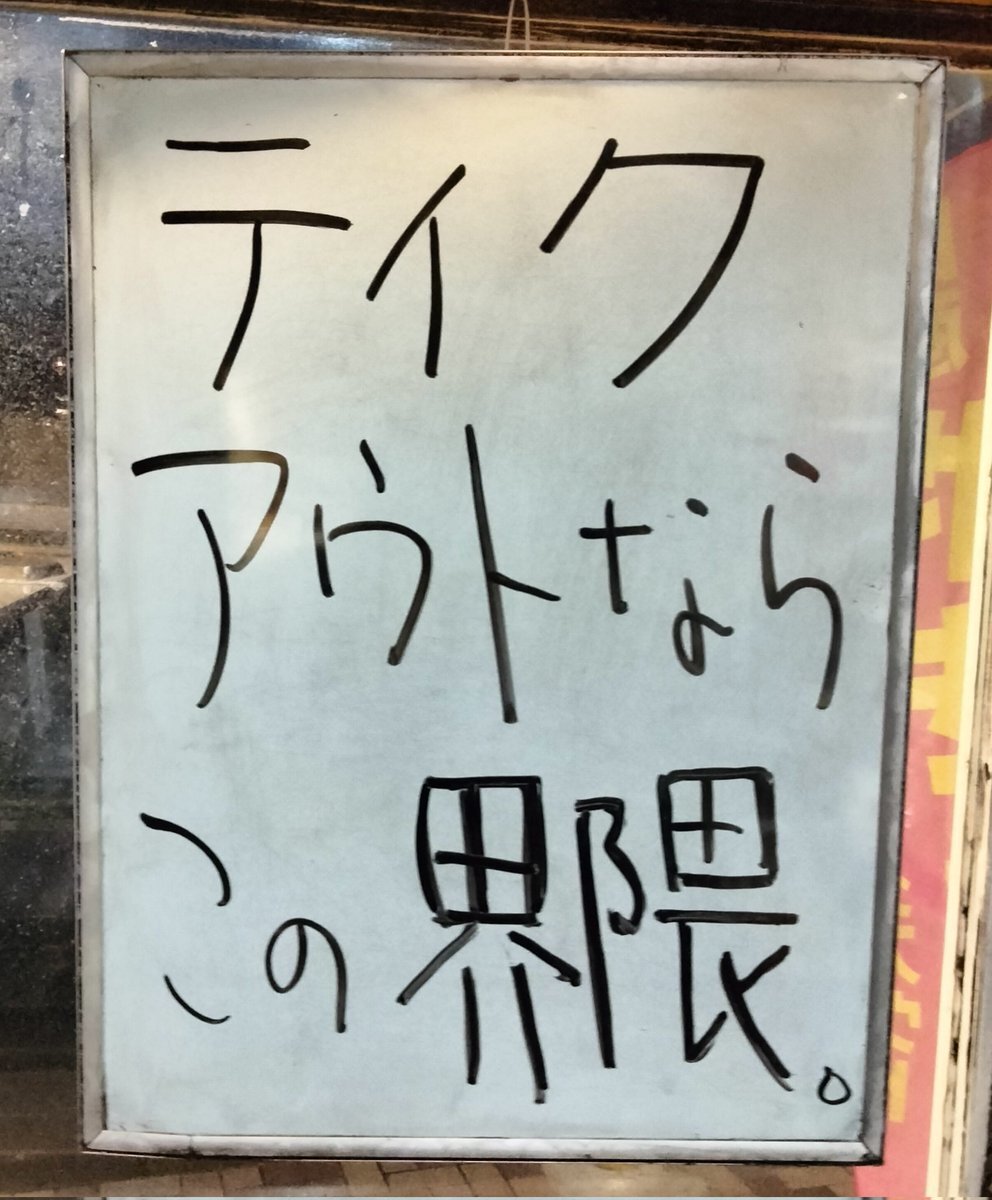 テイク
アウトなら
この界隈。